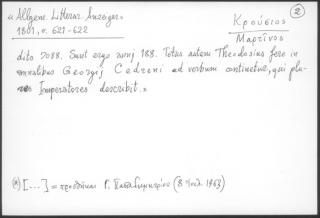 «Allgem. Litterar. Anzeiger»
1801, σ. 621-622
②
Κρούσιος
Μαρτῖνος
dito 7088. Sunt ergo anni 188. Totus autem Theodosius fere in
omnibus Georgij Cedreni ad verbum continetur, qui plu-
res Imperatores describit.»
(*) [...] = προσθῆκαι Γ. Παπαδημητρίου (8 1963)